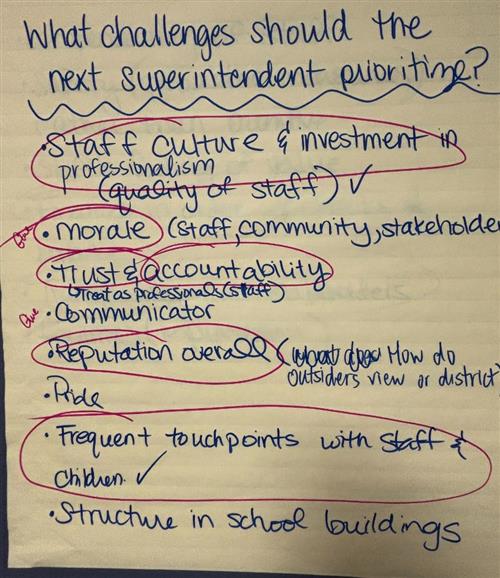 What challenges should the
next superintendent prioritize?
• Staff culture & investment in
professionalism
(quality of staff) ✓
• Morale (staff, community, stakeholder
• Trust & accountability
treat as professionals (staff)
• Communicator
• Reputation overall (what does How do
outsiders view or district?
• Pride
• Frequent touchpoints with staff &
children ✓
• Structure in school buildings